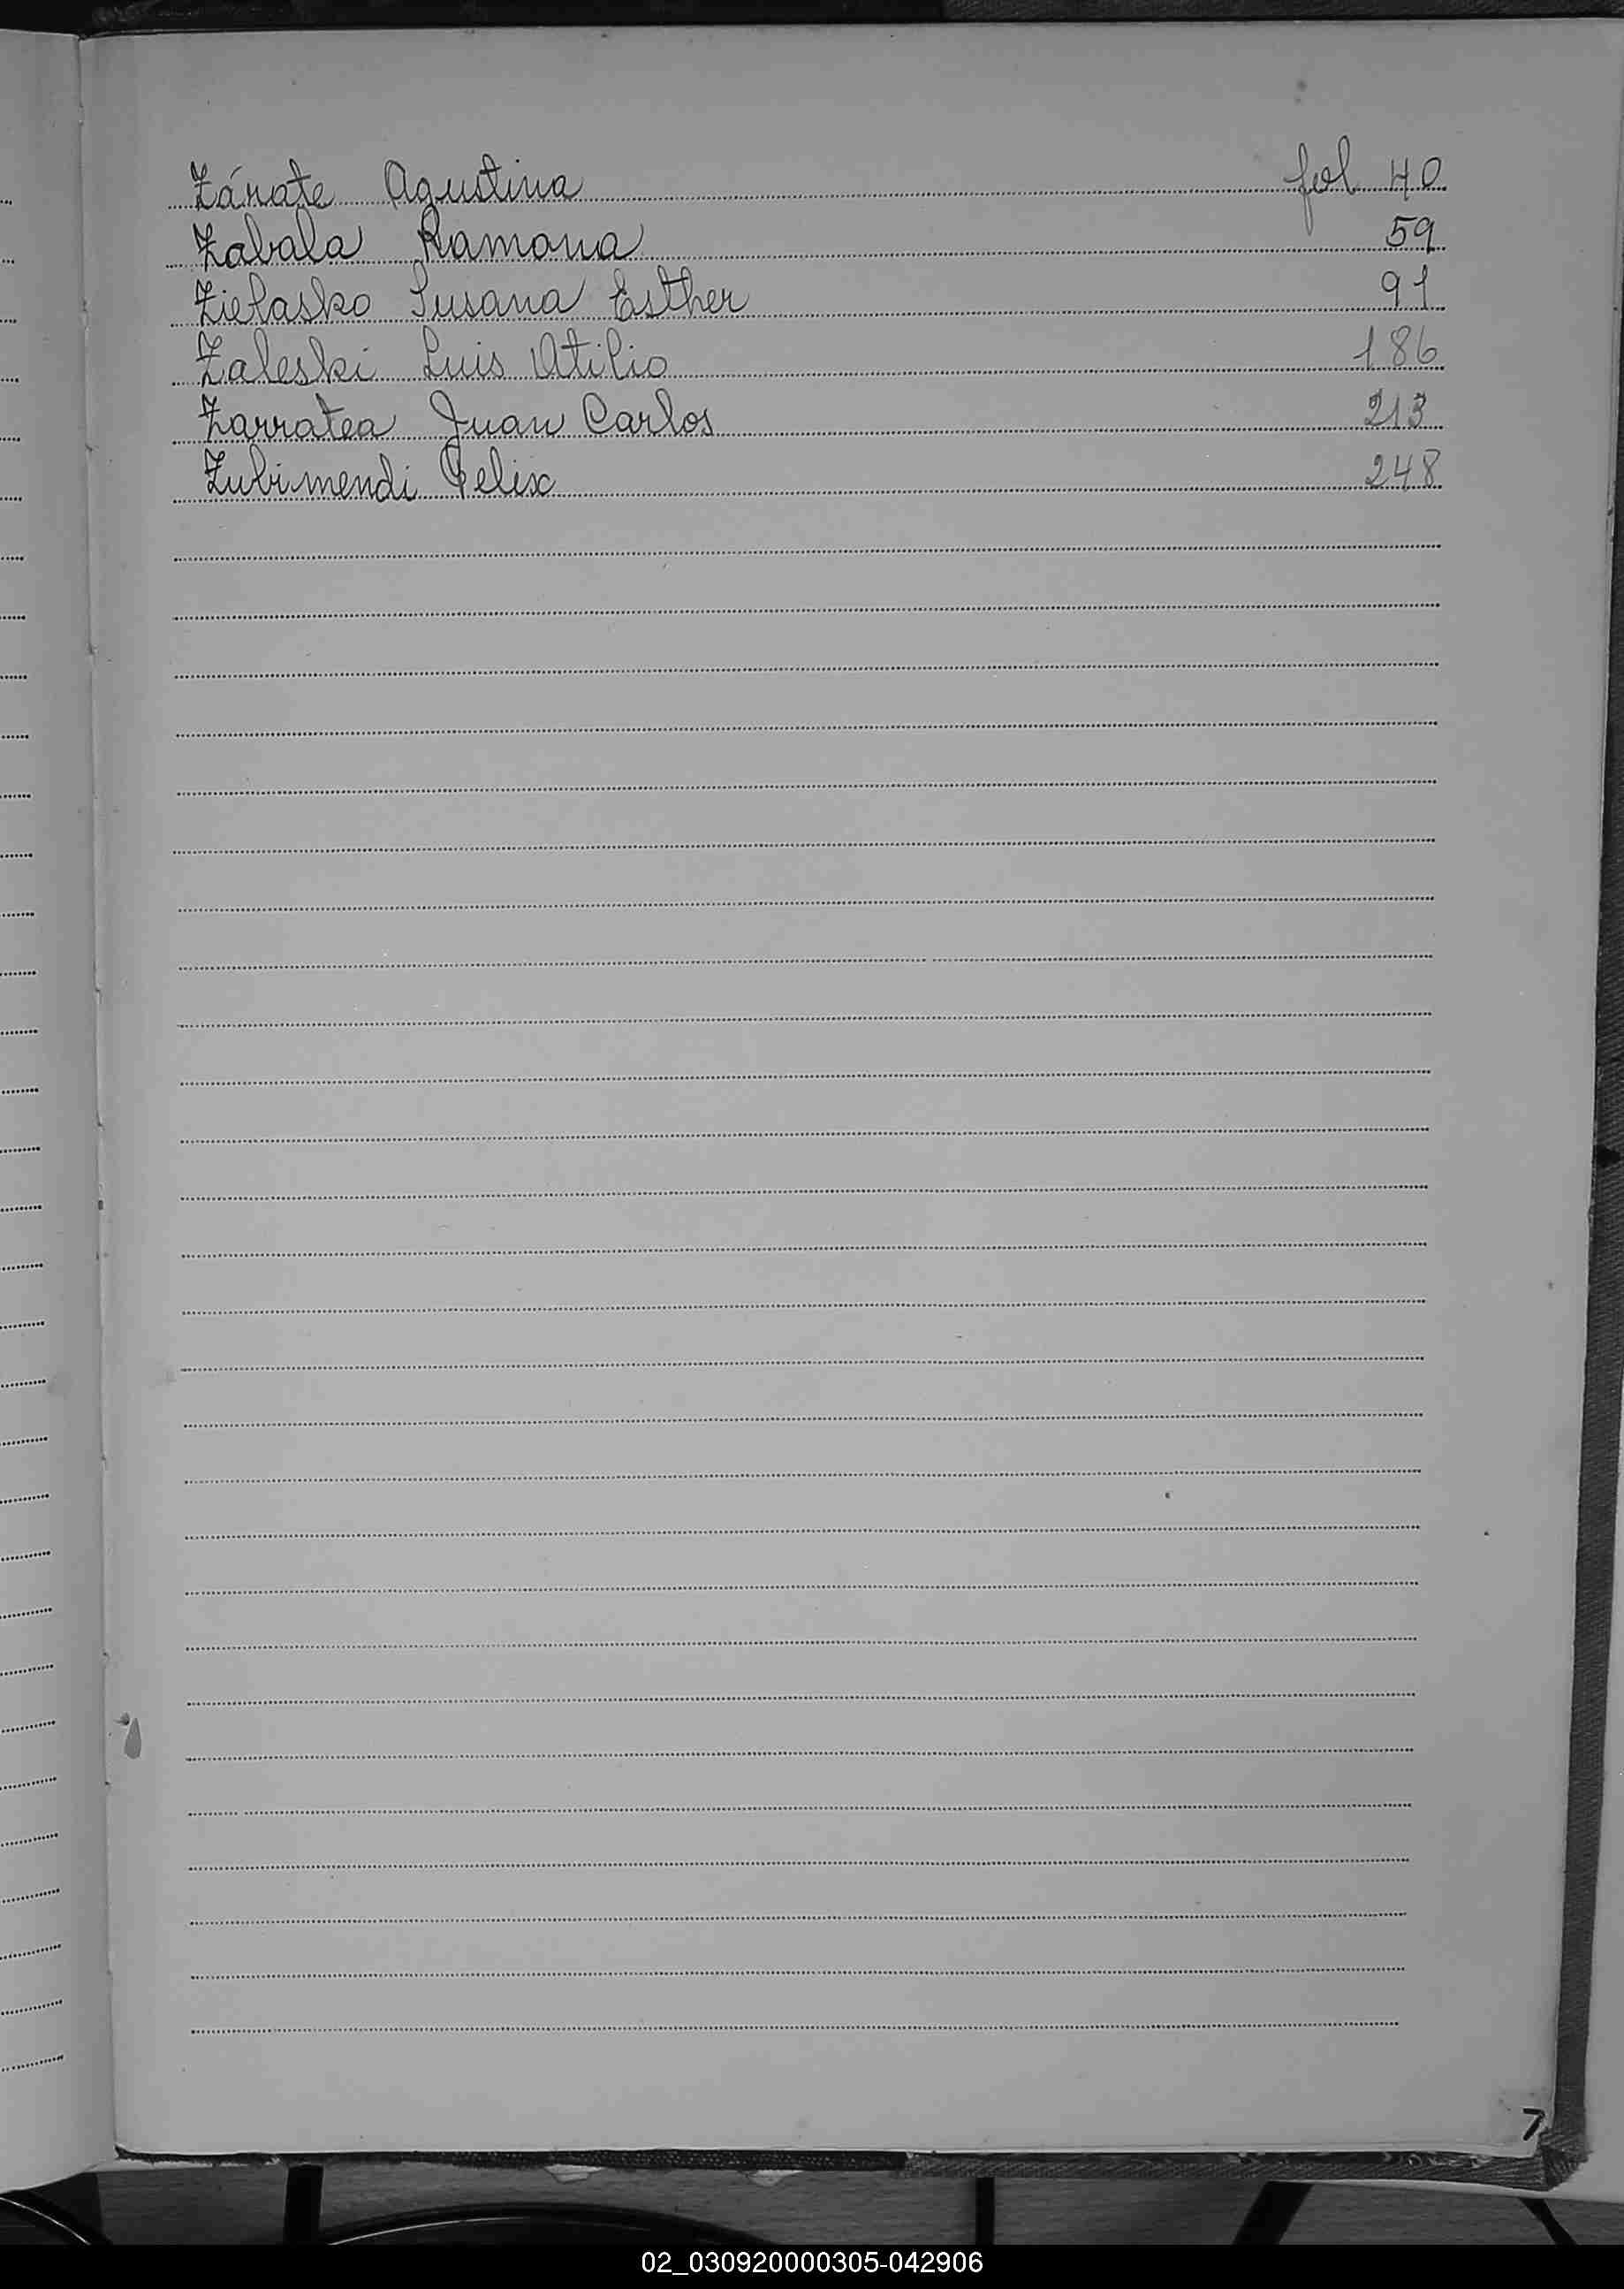 Zárate Agustina fol 40
Zabala Ramona 59
Zielasko Susana Esther 91
Zaleski Luis Atilio 186
Zarratea Juan Carlos 213
Zubimendi Felix 248
7
02_030920000305-042906